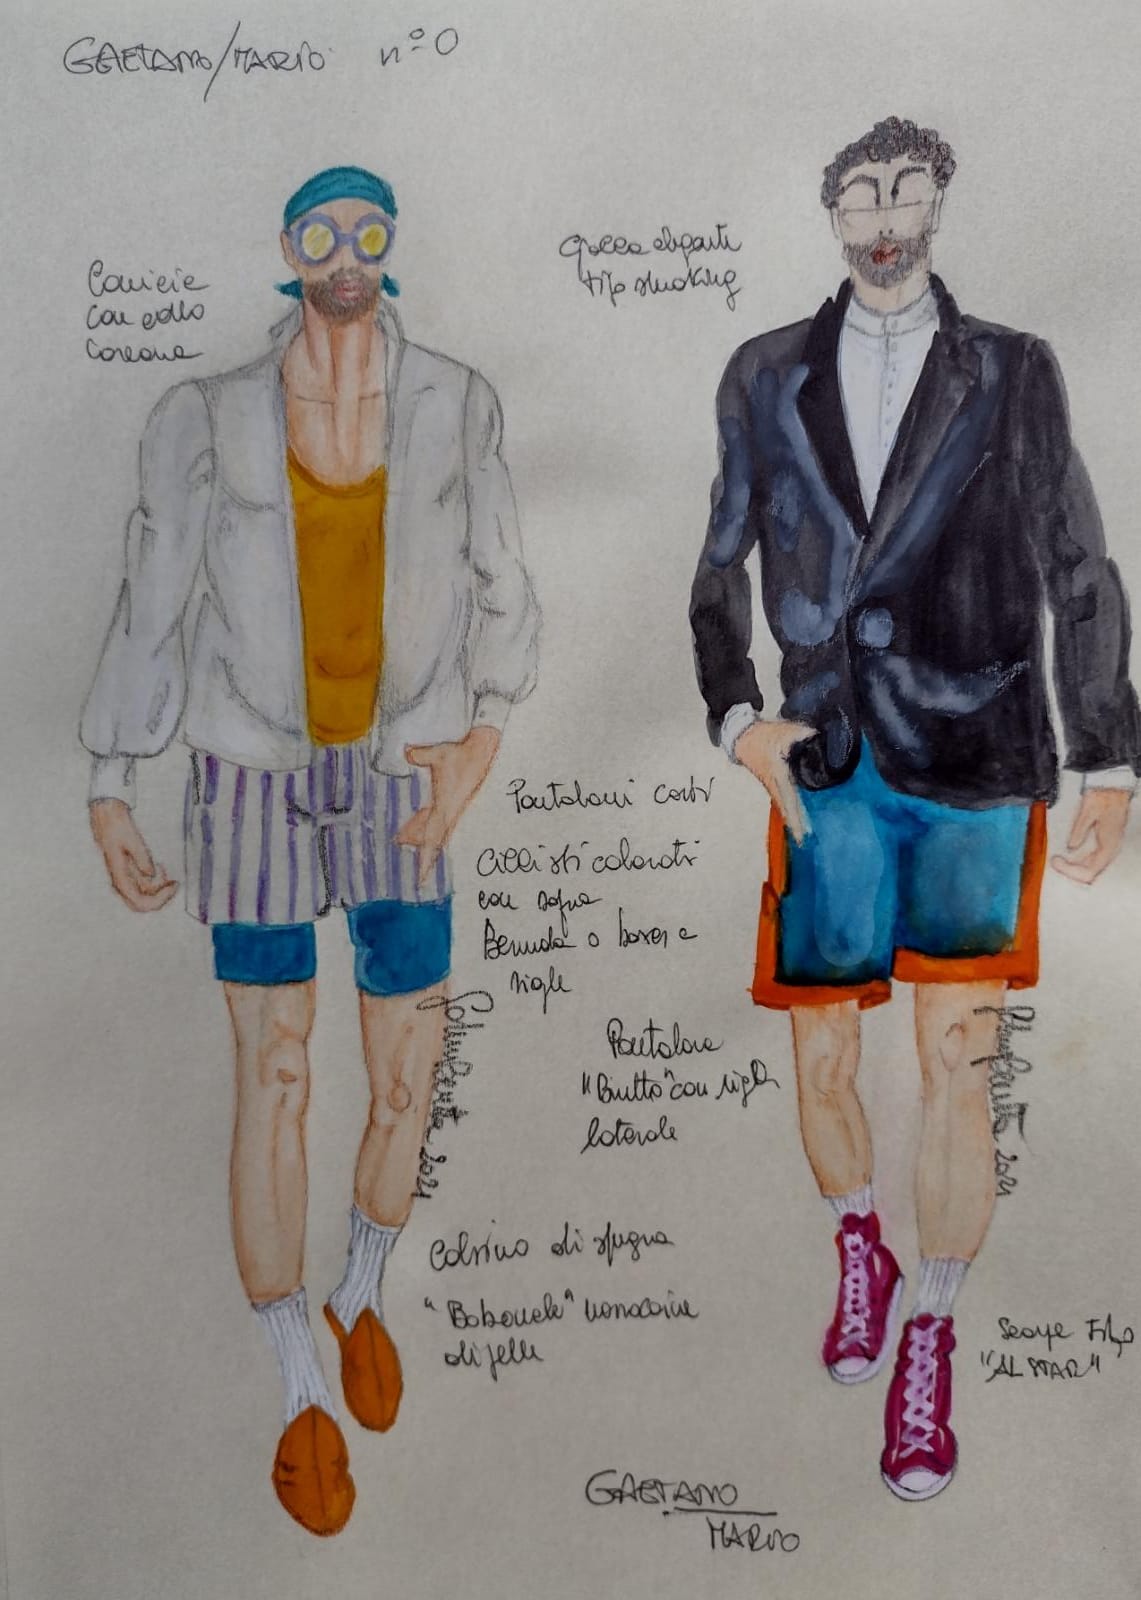 GAETANO/MARIO n°0
Camicia
con collo
Coreana
Giacca elegante
tipo smoking
Pantaloni corti
Ciclisti colorati
con sopra
Bermuda o boxer a
righe
Pantalone
"Brutto" con righe
laterale
Calzino di spugna
"Babouche" marocchine
di pelle
Scarpe Tipo
"AL STAR"
2021
2021
GAETANO
MARIO